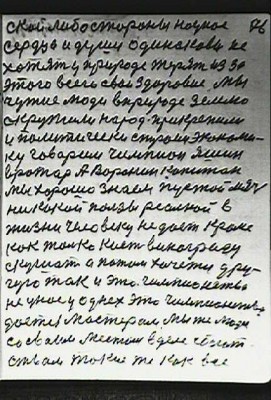 ской либо стороны научное 76
сердца и души одинаковы не
хотят у природе терят из за
этого всего свои здоровие. мы
чужие люди в природе землю
скрутили народ прикрепили
и политически строим экономи-
ку говорим чемпион Яшин
вратар А Воронин капитан
мы хорошо знаем пустой мяч
никакой ползы реалной в
жизни человеку не дает кроме
как толко кист винограду
скушат а потом хочется дру-
гую так и это чемпионство
не у ное у однех это чемпионство
дается Мастерам мы же люди
со своим местом в деле
такие же как все